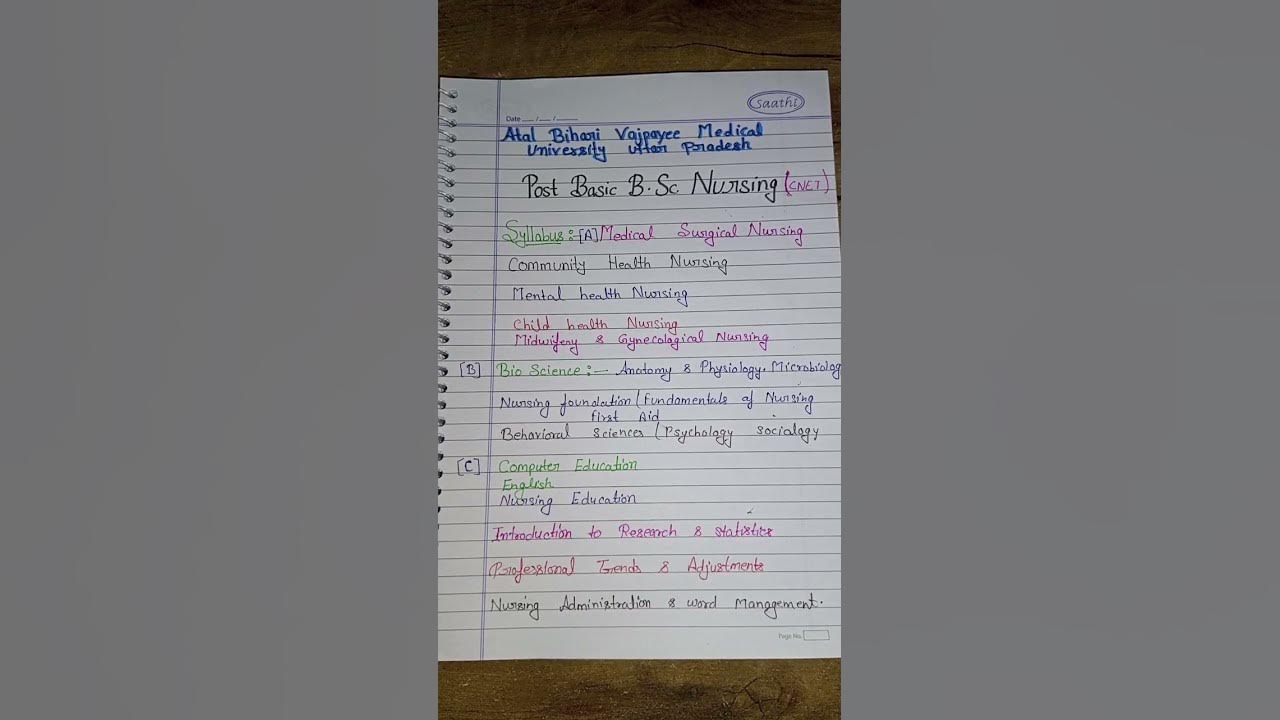 saathi
Date __/__/____
Atal Bihari Vajpayee Medical
University Uttar Pradesh
Post Basic B.Sc Nursing (CNET)
Syllabus:-[A] Medical Surgical Nursing
Community Health Nursing
Mental health Nursing
Child health Nursing
Midwifery & Gynecological Nursing
[B] Bio Science:— Anatomy & Physiology. Microbiolog
Nursing foundation (Fundamentals of Nursing
first Aid
Behavioral Sciences (Psychology Sociology
[C] Computer Education
English
Nursing Education
Introduction to Research & Statistics
Professional Trends & Adjustments
Nursing Administration & word Management.
Page No.